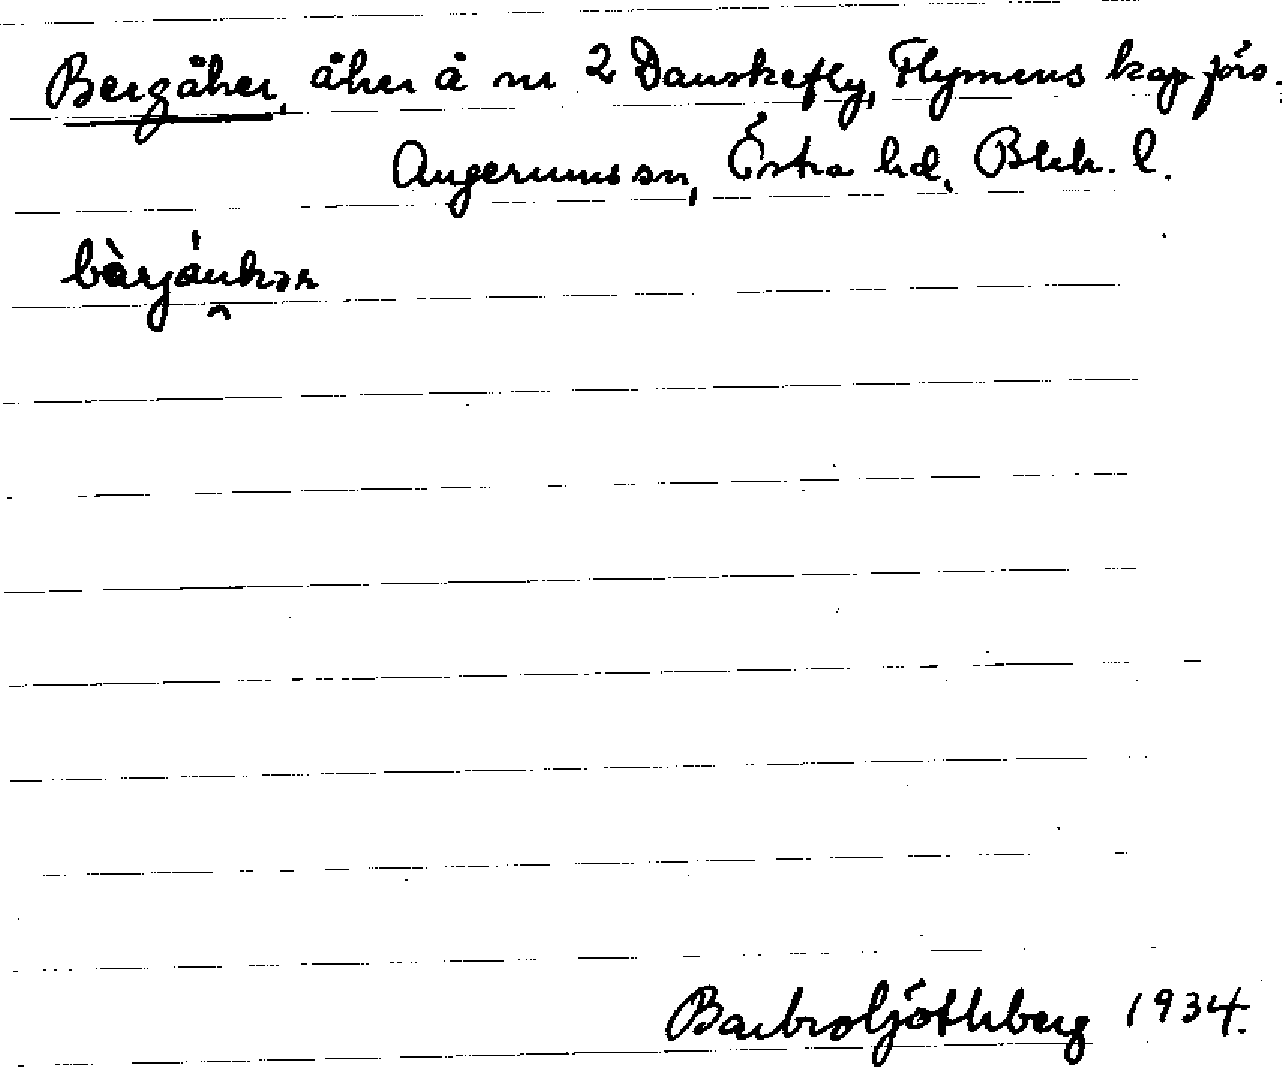 Bergåker, åker å nr 2 Danskefly, Flymens kap förs.,
Augerums sn, Östra hd, Blek. l.
Barbro Göthberg 1934.